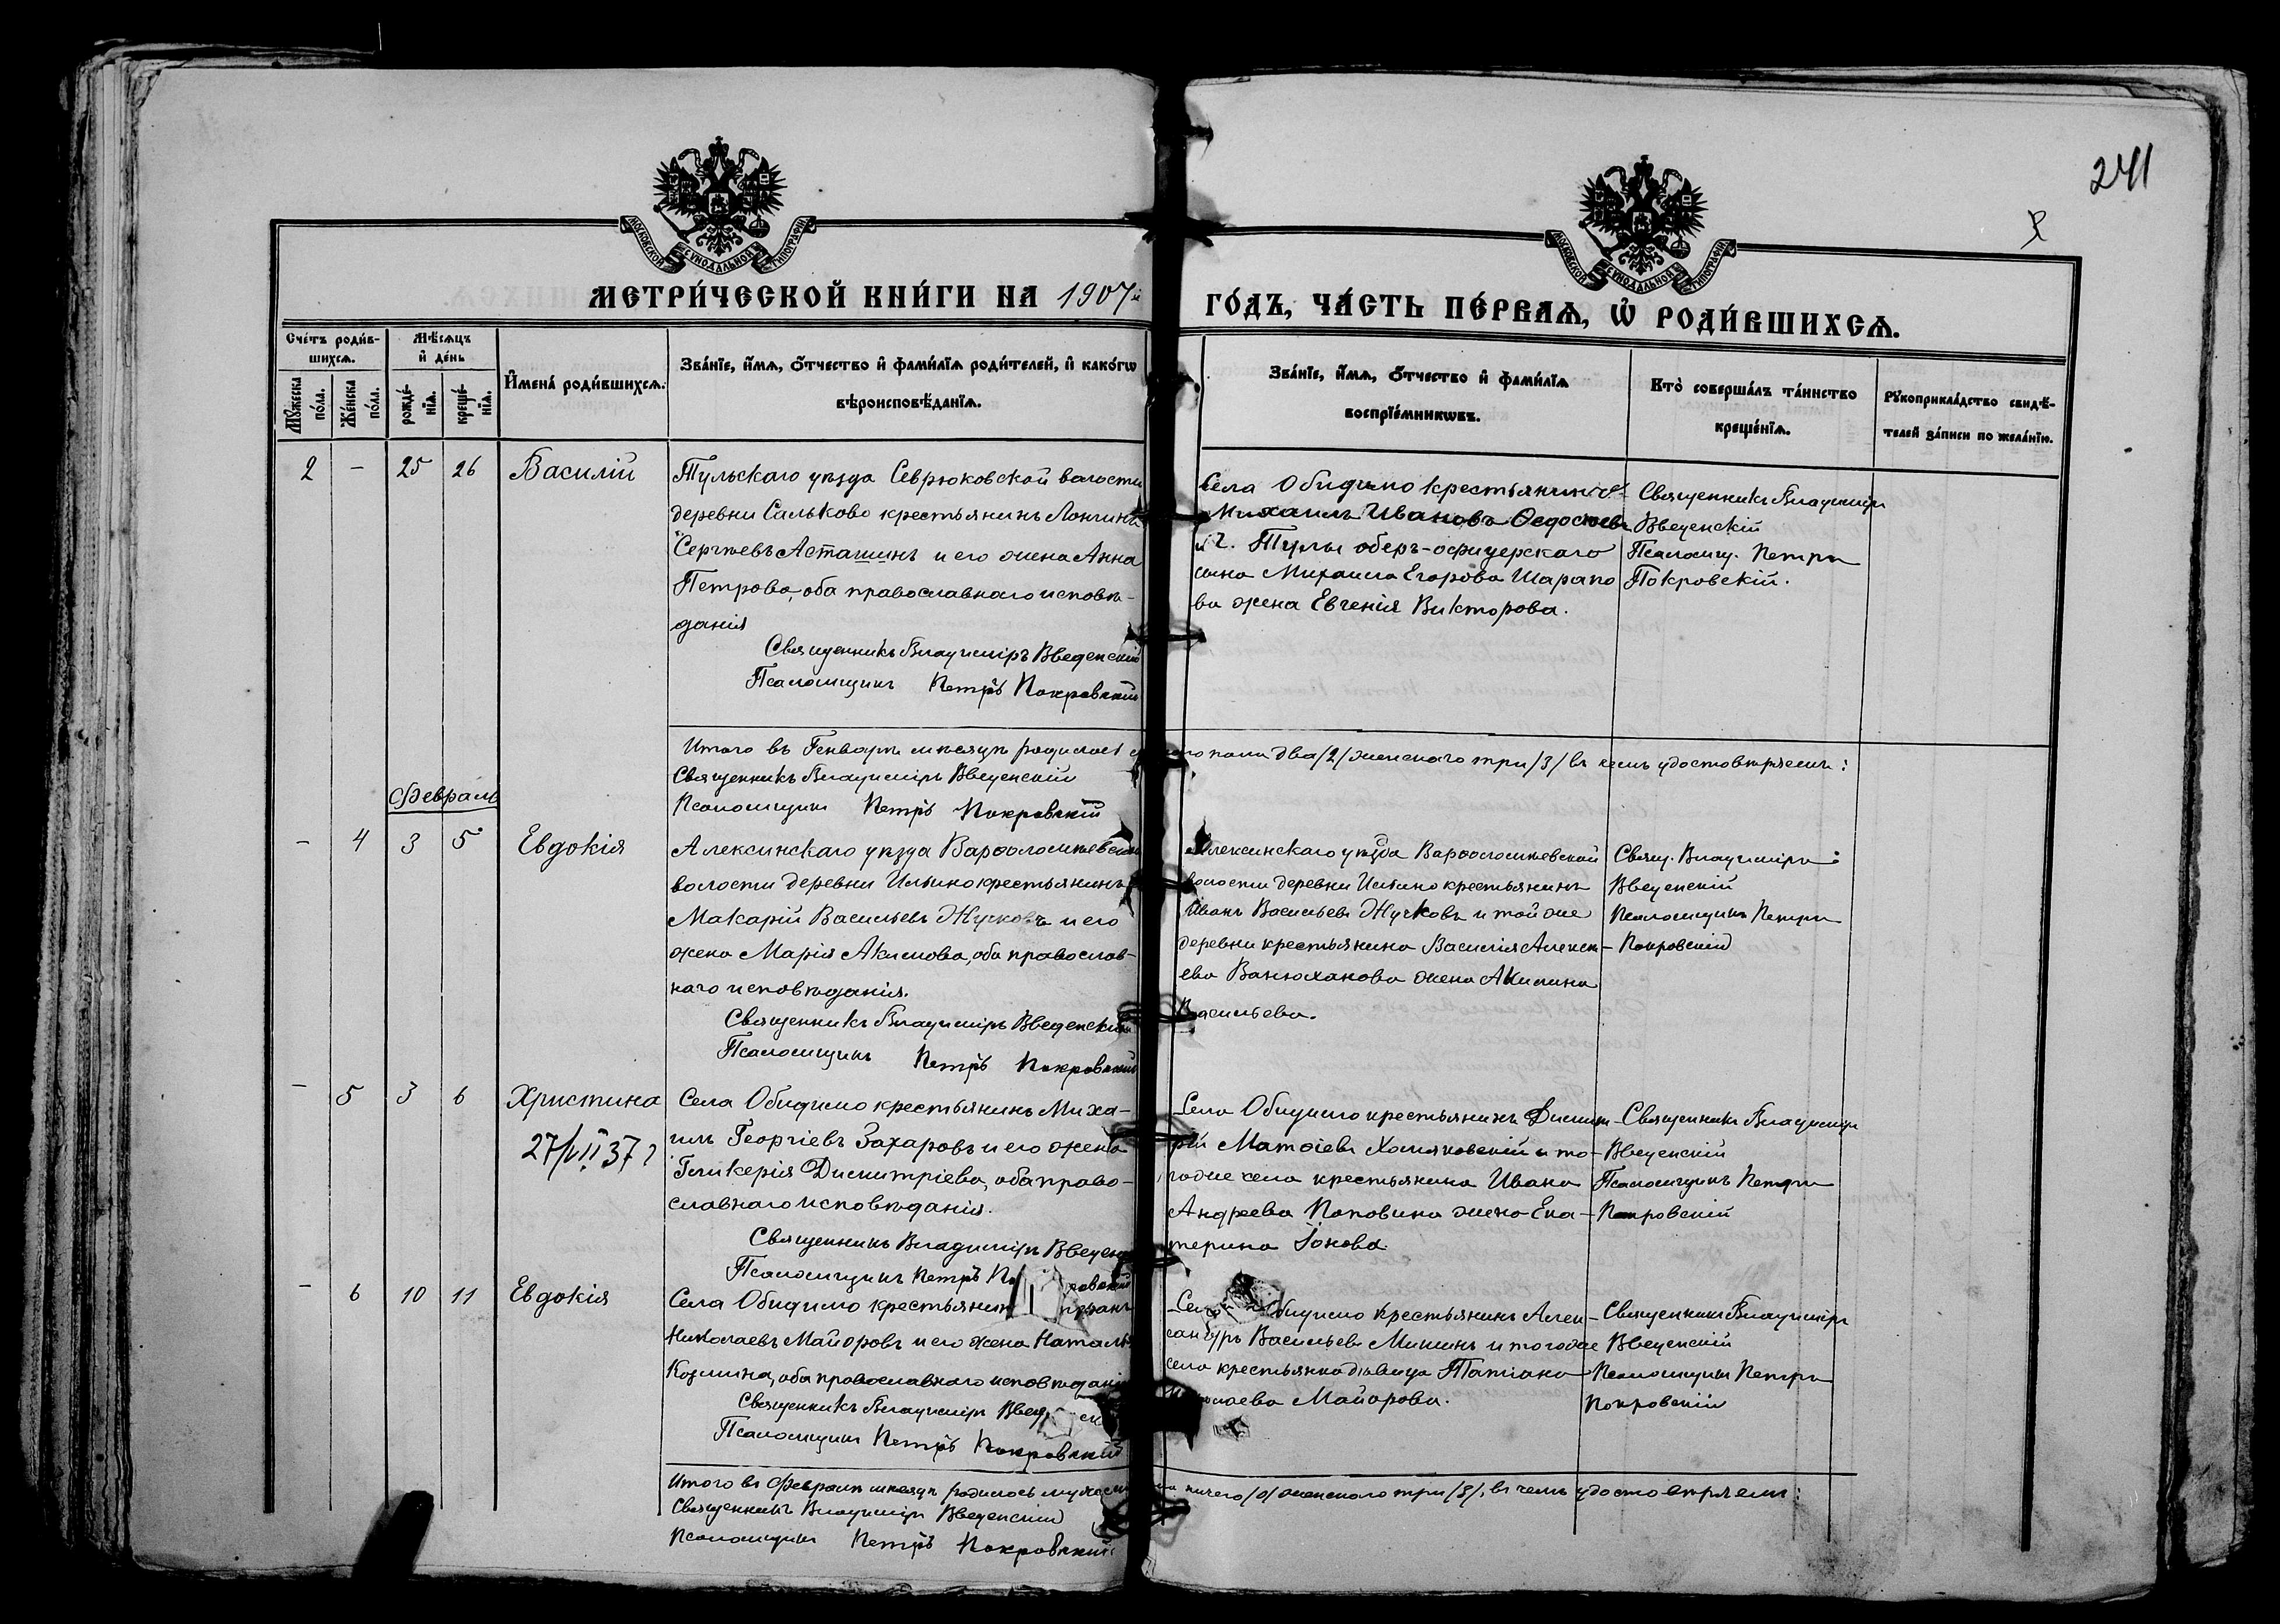 241
МОСКОВСКОЙ СѴНОДАЛЬНОЙ ТИПОГРАФІИ
МОСКОВСКОЙ СѴНОДАЛЬНОЙ ТИПОГРАФІИ
МЕТРИ́ЧЕСКОЙ КНИ́ГИ НА 1907й
ГО́ДЪ, ЧА́СТЬ ПЕ́РВАѦ, Ѽ РОДИ́ВШИХСѦ.
Сче́тъ роди́в-
шихсѧ.
Мѣ́сѧцъ
и҆ де́нь
Мꙋ́жеска
по́ла.
Же́нска
по́ла.
рожде́-
нїѧ.
креще́-
нїѧ.
И҆мена̀ роди́вшихсѧ.
Зва́нїе, и҆́мѧ, ѻ҆́тчество и҆ фами́лїѧ роди́телей, и҆ како́гѡ
вѣроисповѣ́данїѧ.
Зва́нїе, и҆́мѧ, ѻ҆́тчество и҆ фами́лїѧ
воспрїе́мникѡвъ.
Кто̀ соверша́лъ та́инство
креще́нїѧ.
Рꙋкоприкла́дство свидѣ́-
телей за́писи по жела́нїю.
2 - 25 26 Василій
Тульскаго уѣзда Севрюковской волости
деревни Сальково крестьянинъ Лонгинъ
Сергѣевъ Асташинъ и его жена Анна
Петрова, оба православнаго исповѣ-
данія
Священникъ Владиміръ Введенскій
Псаломщикъ Петръ Покровскій
Села Обидимо крестьянинъ
Михаилъ Ивановъ Ѳедосѣевъ
и г. Тулы оберъ-офицерскаго
сына Михаила Егорова Шарапо
ва жена Евгенія Викторова.
Священникъ Владиміръ
Введенскій
Псаломщ. Петръ
Покровскій.
Итого въ Генварѣ мѣсяцѣ родилось
пола два /2/ женскаго три /3/ въ чемъ удостовѣряемъ:
Священникъ Владиміръ Введенскій
Псаломщикъ Петръ Покровскій
Февраль
- 4 3 5 Евдокія
Алексинскаго уѣзда Варѳоломѣевской
волости деревни Ильино крестьянинъ
Макарій Васильевъ Жучковъ и его
жена Марія Акимова, оба православ-
наго исповѣданія.
Священникъ Владиміръ Введенскій
Псаломщикъ Петръ Покровскій
Алексинскаго уѣзда Варѳоломѣевской
волости деревни Ильино крестьянинъ
Иванъ Васильевъ Жучковъ и той же
деревни крестьянина Василія Алексѣ-
ева Ванюханова жена Акилина
Васильева.
Свящ. Владиміръ
Введенскій
Псаломщикъ Петръ
Покровскій
- 5 3 6 Христина
27/VII 37 г
Села Обидимо крестьянинъ Миха-
илъ Георгіевъ Захаровъ и его жена
Гликерія Димитріева, оба право-
славнаго исповѣданія.
Священникъ Владиміръ Введен
Псаломщикъ Петръ Покровскій
Села Обидимо крестьянинъ Димит-
рій Матѳіевъ Хомяковскій и то-
гоже села крестьянина Ивана
Андреева Поповина жена Ека-
терина Іонова
Священникъ Владиміръ
Введенскій
Псаломщикъ Петръ
Покровскій
- 6 10 11 Евдокія
Села Обидимо крестьянин
Николаевъ Майоровъ и его жена Наталія
Козмина, оба православнаго исповѣданія
Священникъ Владиміръ Введенск
Псаломщикъ Петръ Покровскій
Села Обидимо крестьянинъ Алек-
сандръ Васильевъ Мишинъ и тогоже
села крестьянка дѣвица Татіана
Николаева Майорова.
Священникъ Владиміръ
Введенскій
Псаломщикъ Петръ
Покровскій
Итого въ Февралѣ мѣсяцѣ родилось мужеск
ничего /0/ женскаго три /3/, въ чемъ удостовѣряемъ:
Священникъ Владиміръ Введенскій
Псаломщикъ Петръ Покровскій